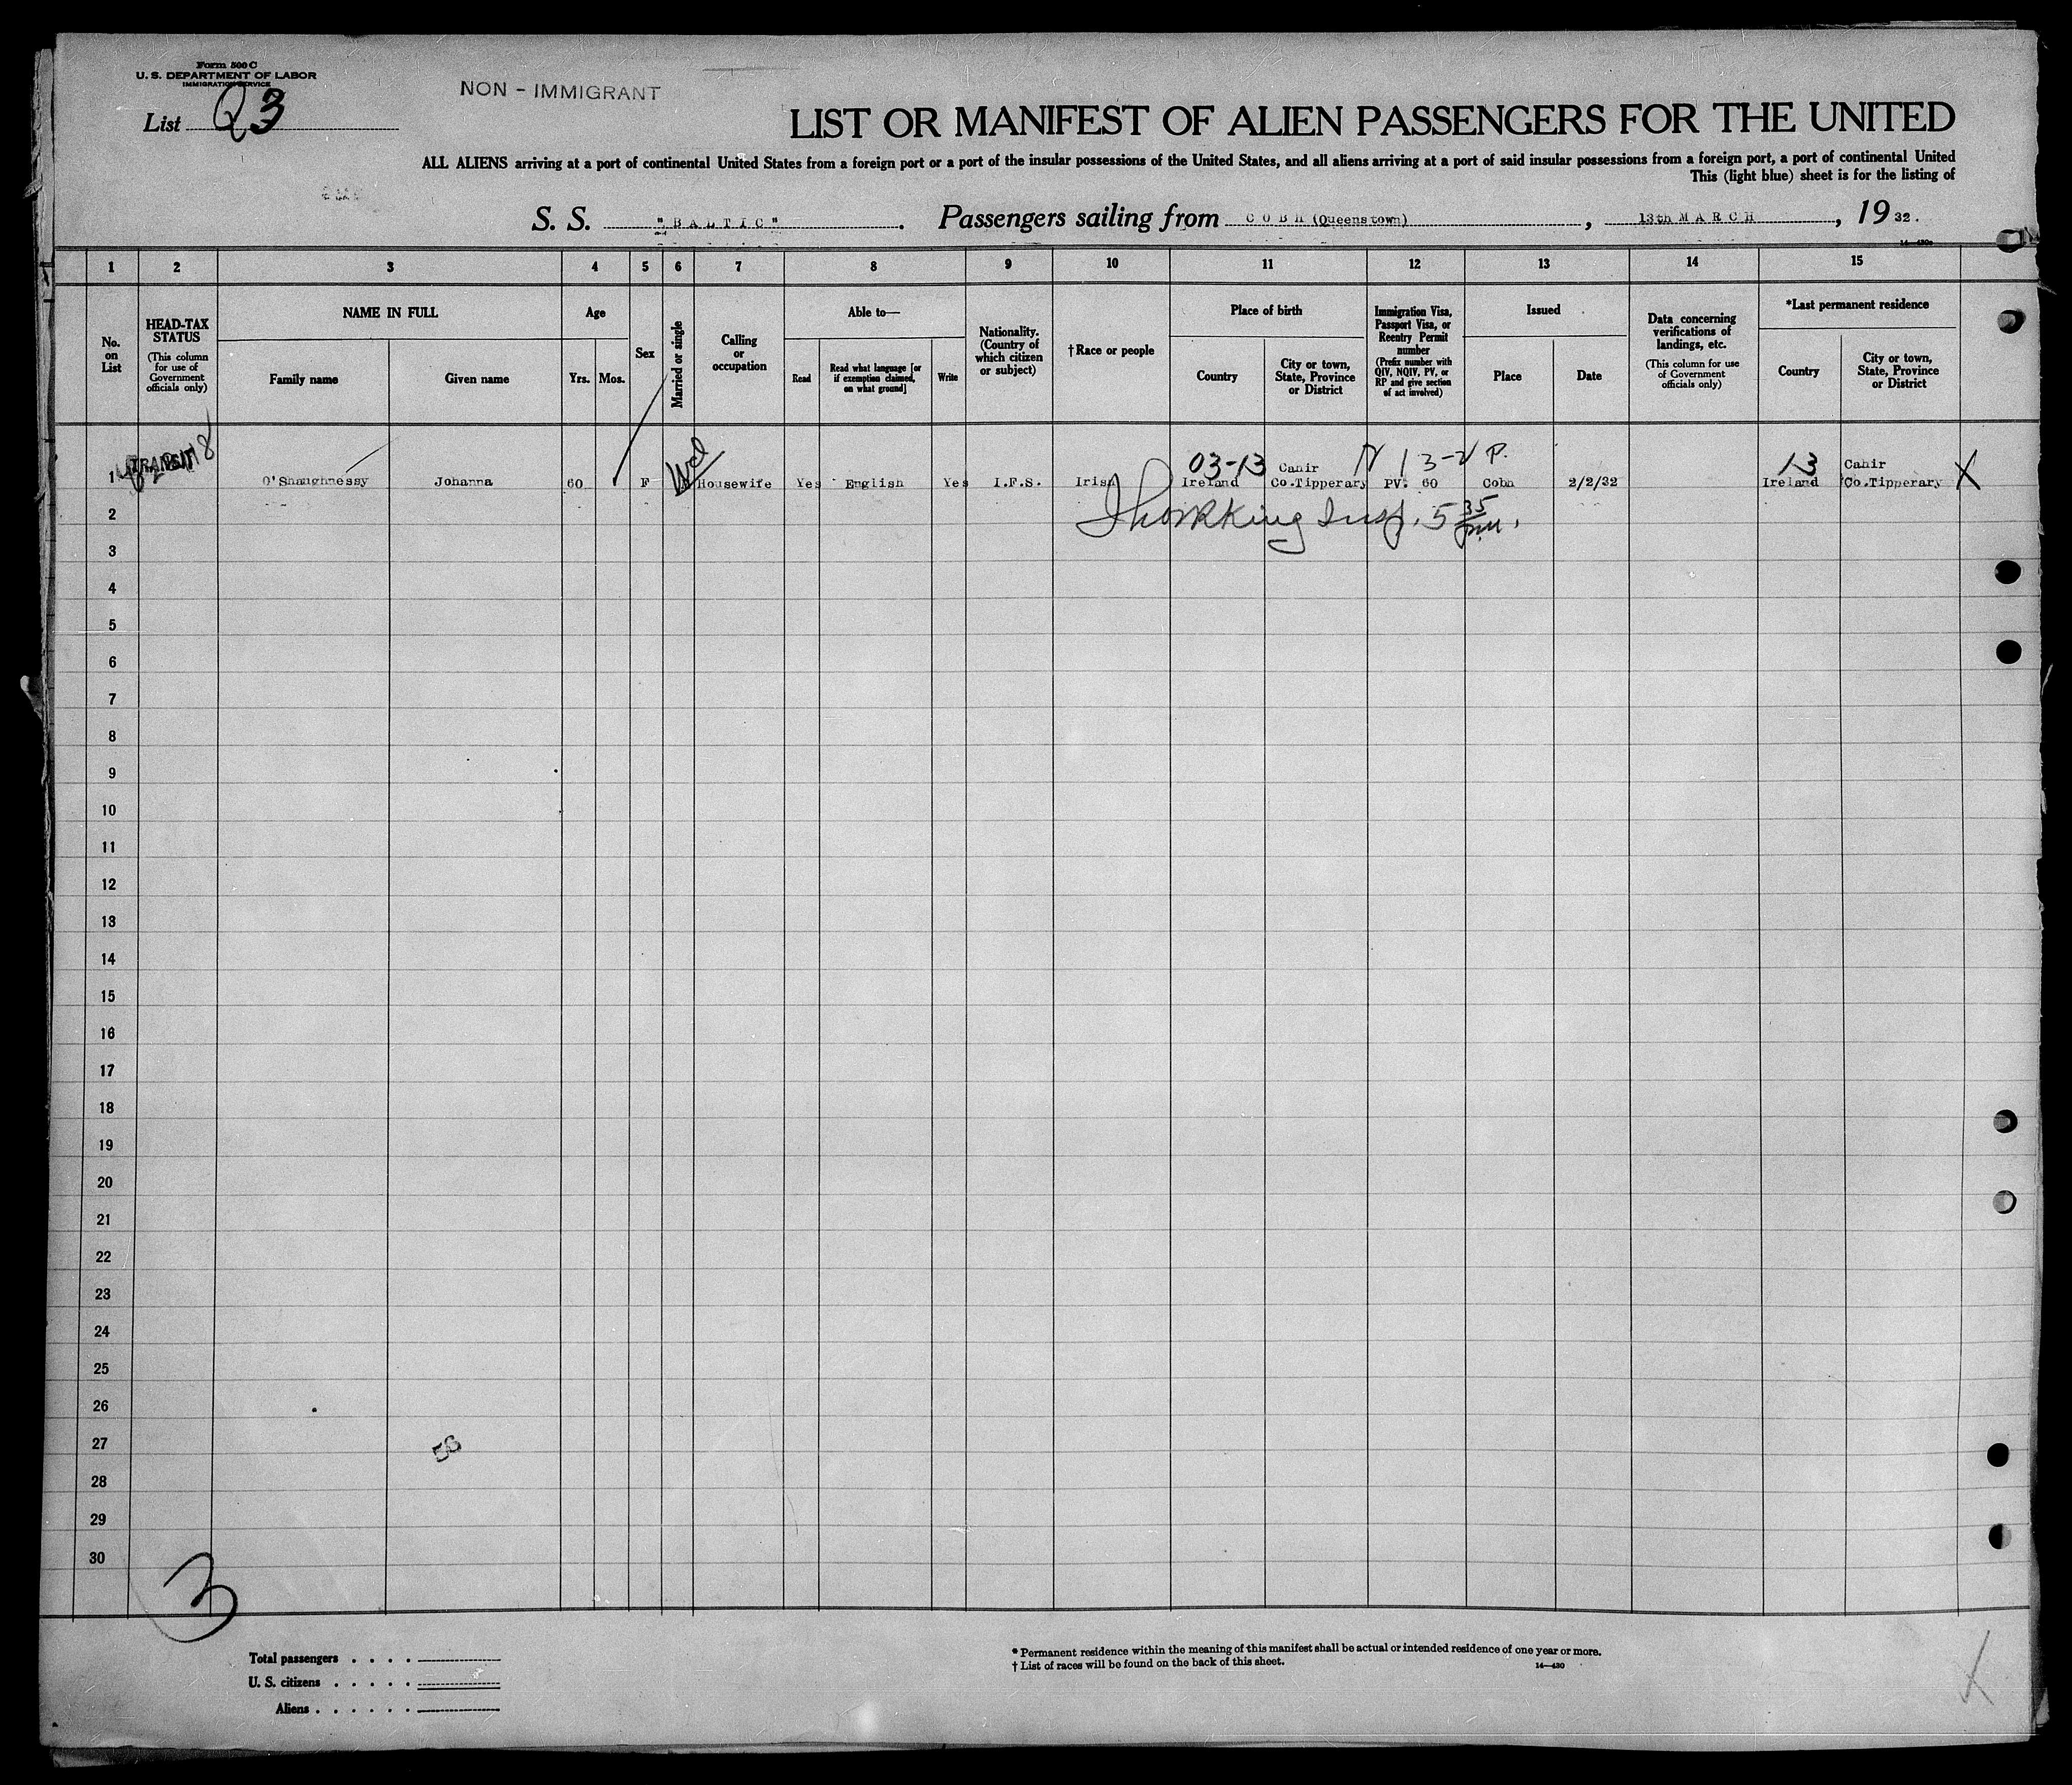 Form 500 C
U. S. DEPARTMENT OF LABOR
IMMIGRATION SERVICE
NON - IMMIGRANT
List 3
LIST OR MANIFEST OF ALIEN PASSENGERS FOR THE UNITED
ALL ALIENS arriving at a port of continental United States from a foreign port or a port of the insular possessions of the United States, and all aliens arriving at a port of said insular possessions from a foreign port, a port of continental United
This (light blue) sheet is for the listing of
S. S. "BALTIC". Passengers sailing from COBH (Queenstown), 13th MARCH, 19 32.
1 2 3 4 5 6 7 8 9 10 11 12 13 14 15
No. on List
HEAD-TAX STATUS
(This column for use of Government officials only)
NAME IN FULL
Family name
Given name
Age
Yrs.
Mos.
Sex
Married or single
Calling or occupation
Able to—
Read
Read what language [or if exemption claimed, on what ground]
Write
Nationality. (Country of which citizen or subject)
†Race or people
Place of birth
Country
City or town, State, Province or District
Immigration Visa, Passport Visa, or Reentry Permit number
(Prefix number with QIV, NQIV, PV, or RP and give section of act involved)
Issued
Place
Date
Data concerning verifications of landings, etc.
(This column for use of Government officials only)
*Last permanent residence
Country
City or town, State, Province or District
TRANSIT
Wd
03-13
13-2 P.
13
1 O'Shaughnessy Johanna 60 F Housewife Yes English Yes I.F.S. Irish Ireland Cahir Co.Tipperary PV. 60 Cobh 2/2/32 Ireland Cahir Co.Tipperary X
Insp. 5 35 pm.
2
3
4
5
6
7
8
9
10
11
12
13
14
15
16
17
18
19
20
21
22
23
24
25
26
27
28
29
30
3
Total passengers
U. S. citizens
Aliens
* Permanent residence within the meaning of this manifest shall be actual or intended residence of one year or more.
† List of races will be found on the back of this sheet.
14—430